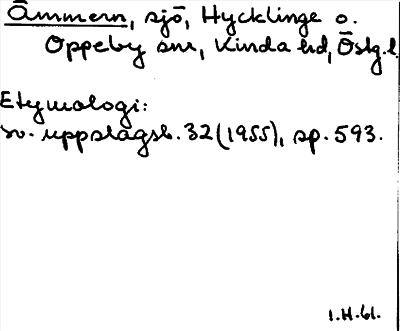 Ämmern, sjö, Hycklinge o.
Oppeby snr, Kinda hd, Östg.l.
Etymologi:
Sv. uppslagsb. 32 (1955), sp. 593.
I.H.61.